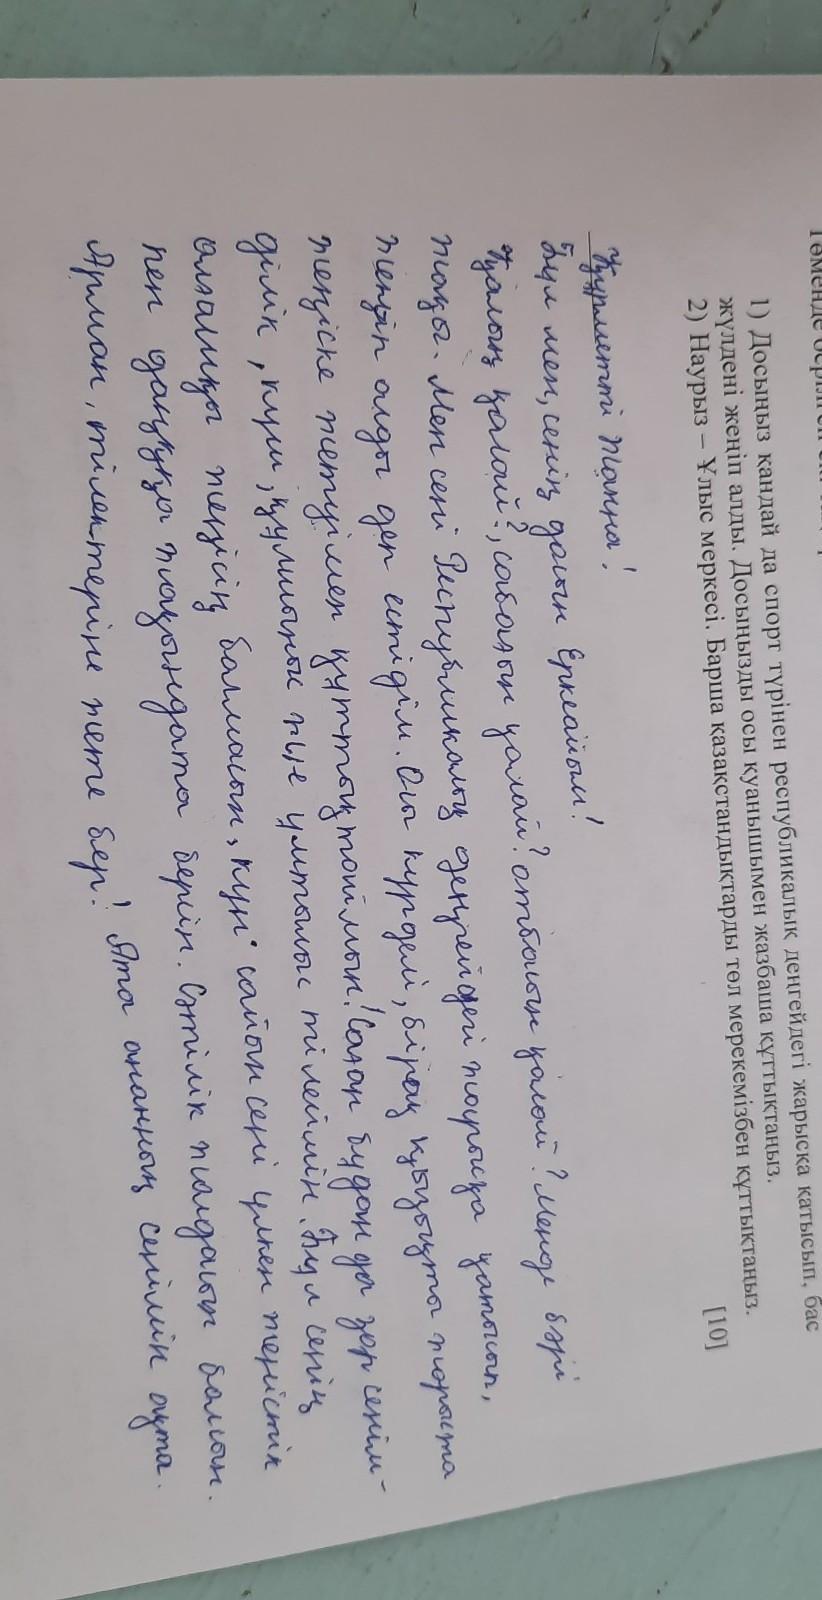 Төменде берілген
1) Досыңыз қандай да спорт түрінен республикалық деңгейдегі жарысқа қатысып, бас
жүлдені жеңіп алды. Досыңызды осы қуанышымен жазбаша құттықтаңыз.
2) Наурыз – Ұлыс меркесі. Барша қазақстандықтарды төл мерекемізбен құттықтаңыз.
[10]
Құрметті Жанна!
Бұл мен, сенің досын Еркеайым!
Қалың қалай?, сабағын қалай? отбасын қалай? Менде бәрі
жақсы. Мен сені Республикалық деңгейдегі жарысқа қатысып,
жеңіп алды деп естідім. Осы күрделі, бірақ қызықты жарыста
жеңіске жетуімен құттықтаймын! Саған бұдан да зор сенім-
ділік, күш, құлшыныс және ұмтылыс тілеймін. Бұл сенің
алғашқы жеңісің болмасын, күн сайын сені үлкен жеңістік
пен даңққа жақындата берсін. Сәтілік жалдасын болсын.
Арман, тілектеріне жете бер! Ата ананның сенімін ақта.